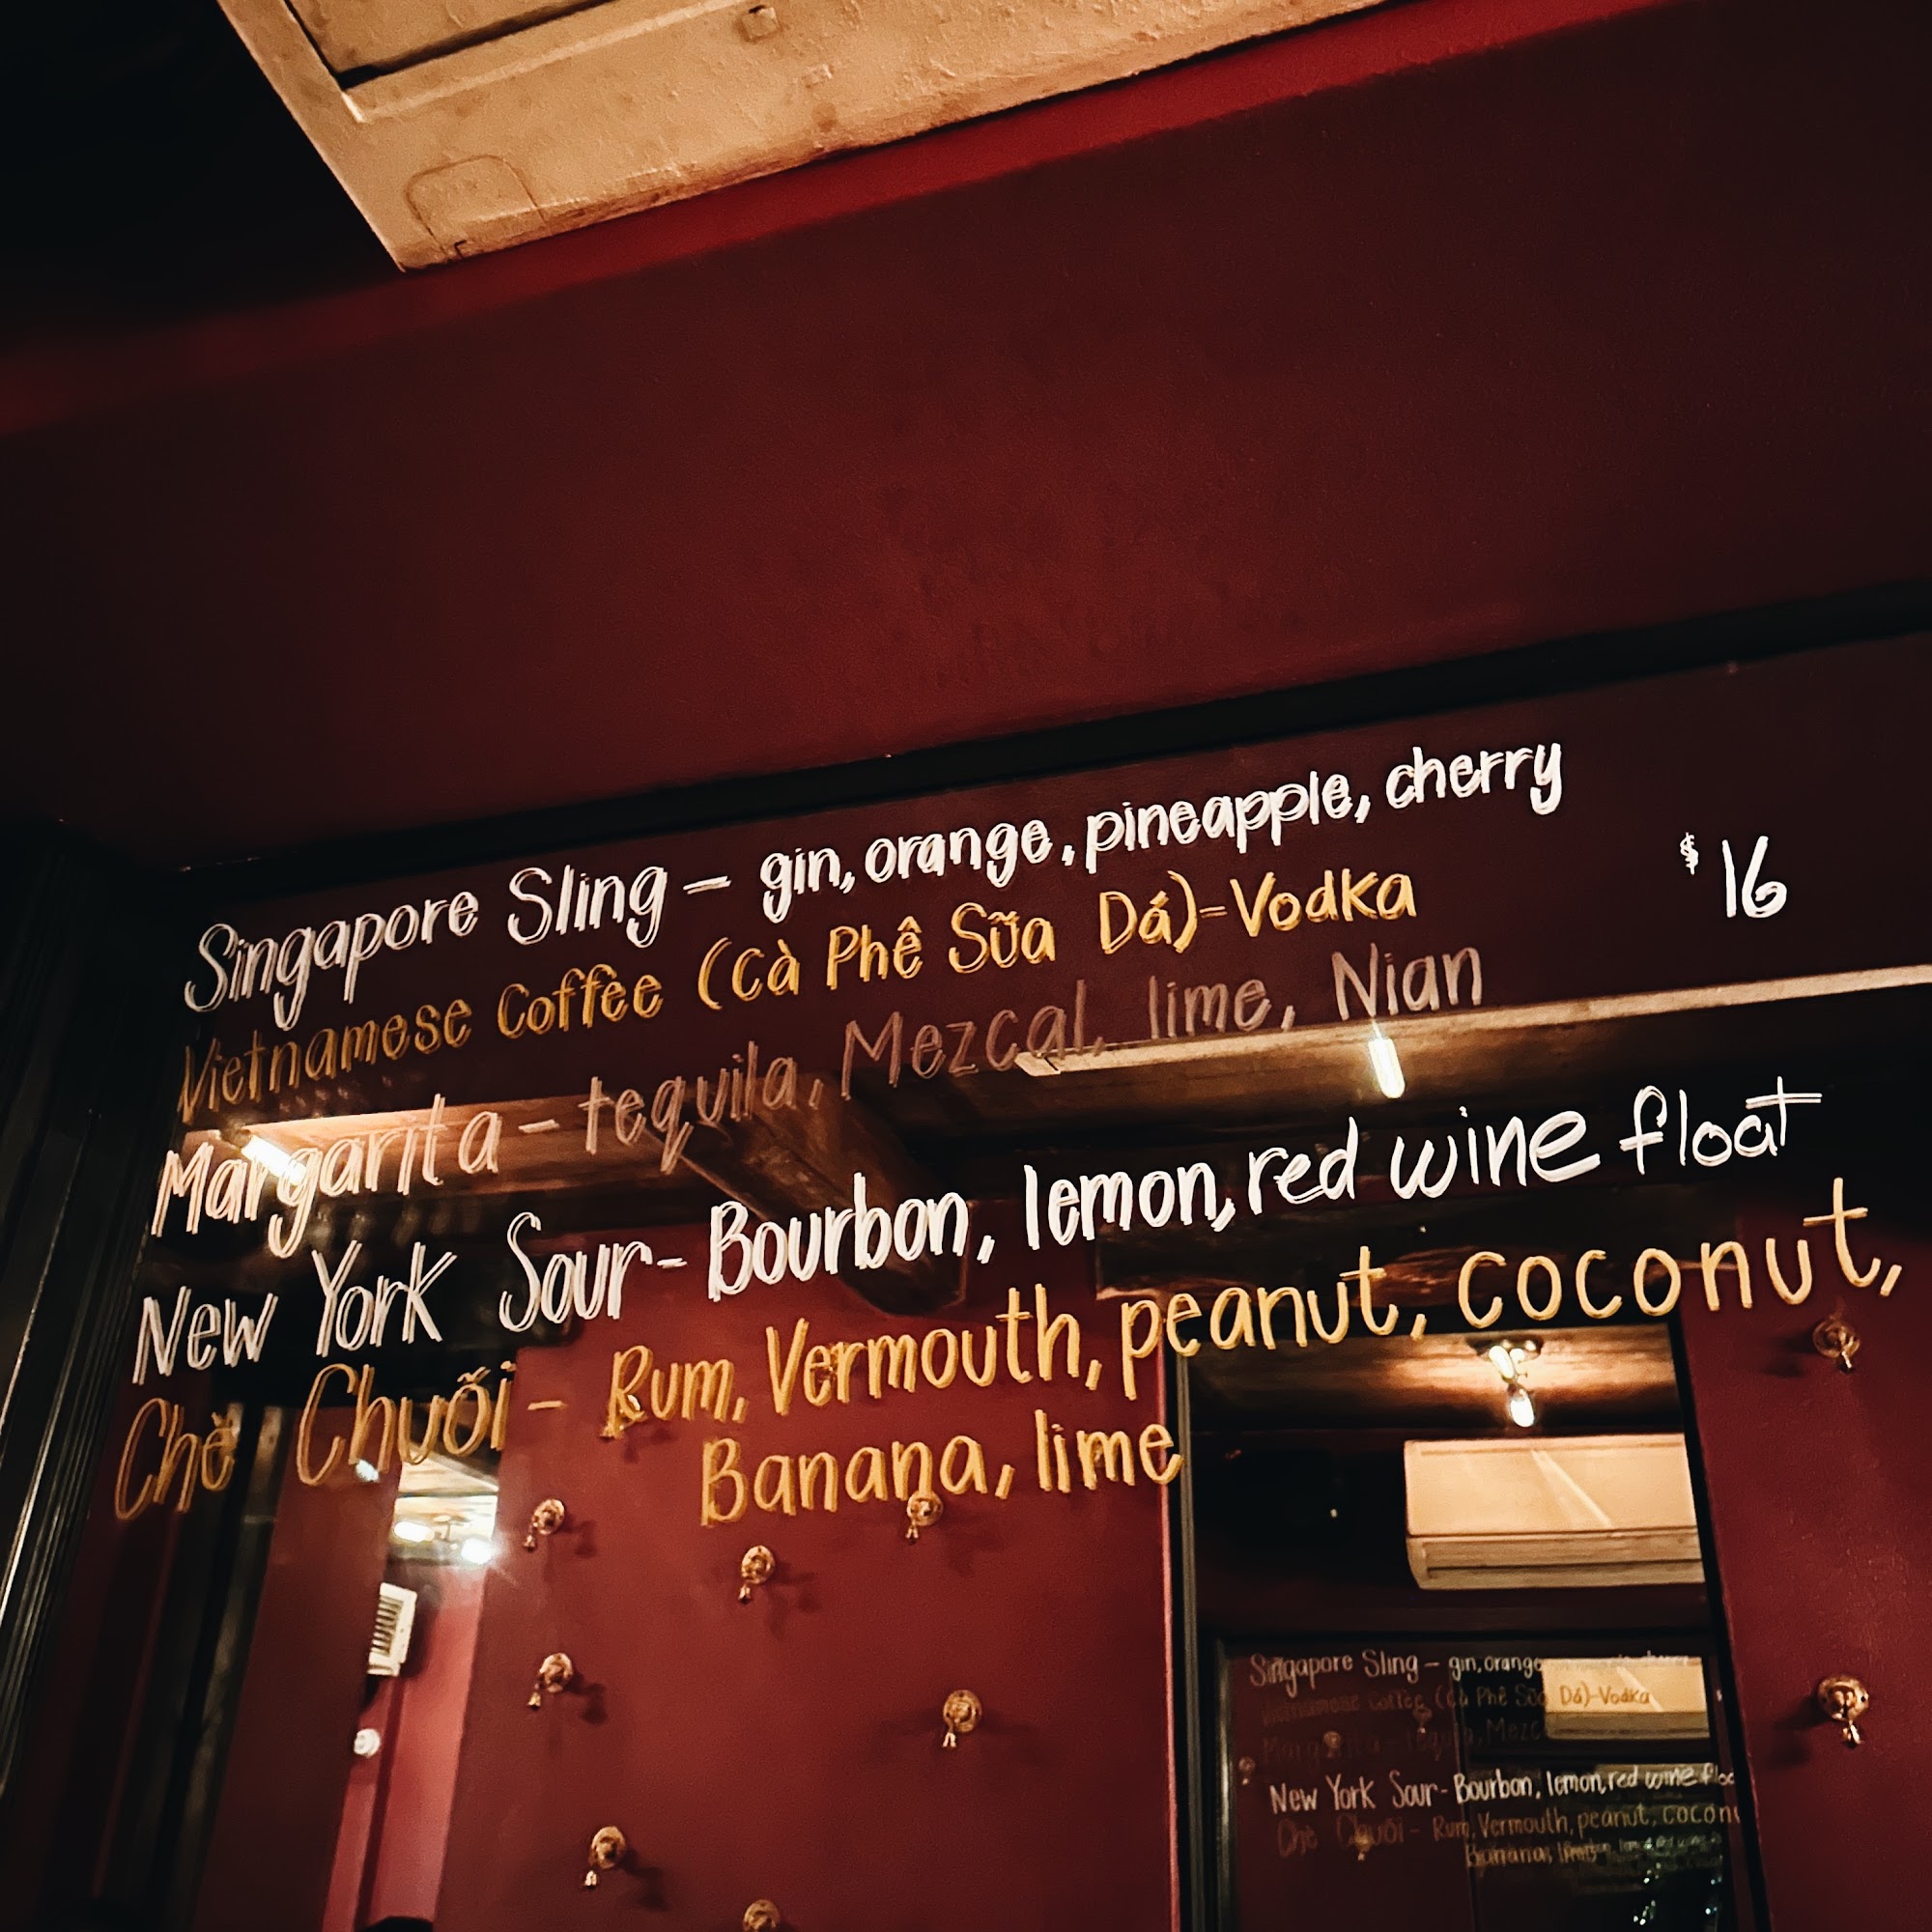 Singapore Sling - gin, orange, pineapple, cherry
Vietnamese Coffee (Cà Phê Sữa Dá) - Vodka
$16
Margarita - tequila, Mezcal, lime, Nian
New York Sour - Bourbon, lemon, red wine float
Chè Chuối - Rum, Vermouth, peanut, coconut,
Banana, lime
Singapore Sling - gin, orange
Vietnamese Coffee (Cà Phê Sữa Dá) - Vodka
Margarita - tequila, Mezc
New York Sour - Bourbon, lemon, red wine floa
Chè Chuối - Rum, Vermouth, peanut, coconu
Banana,